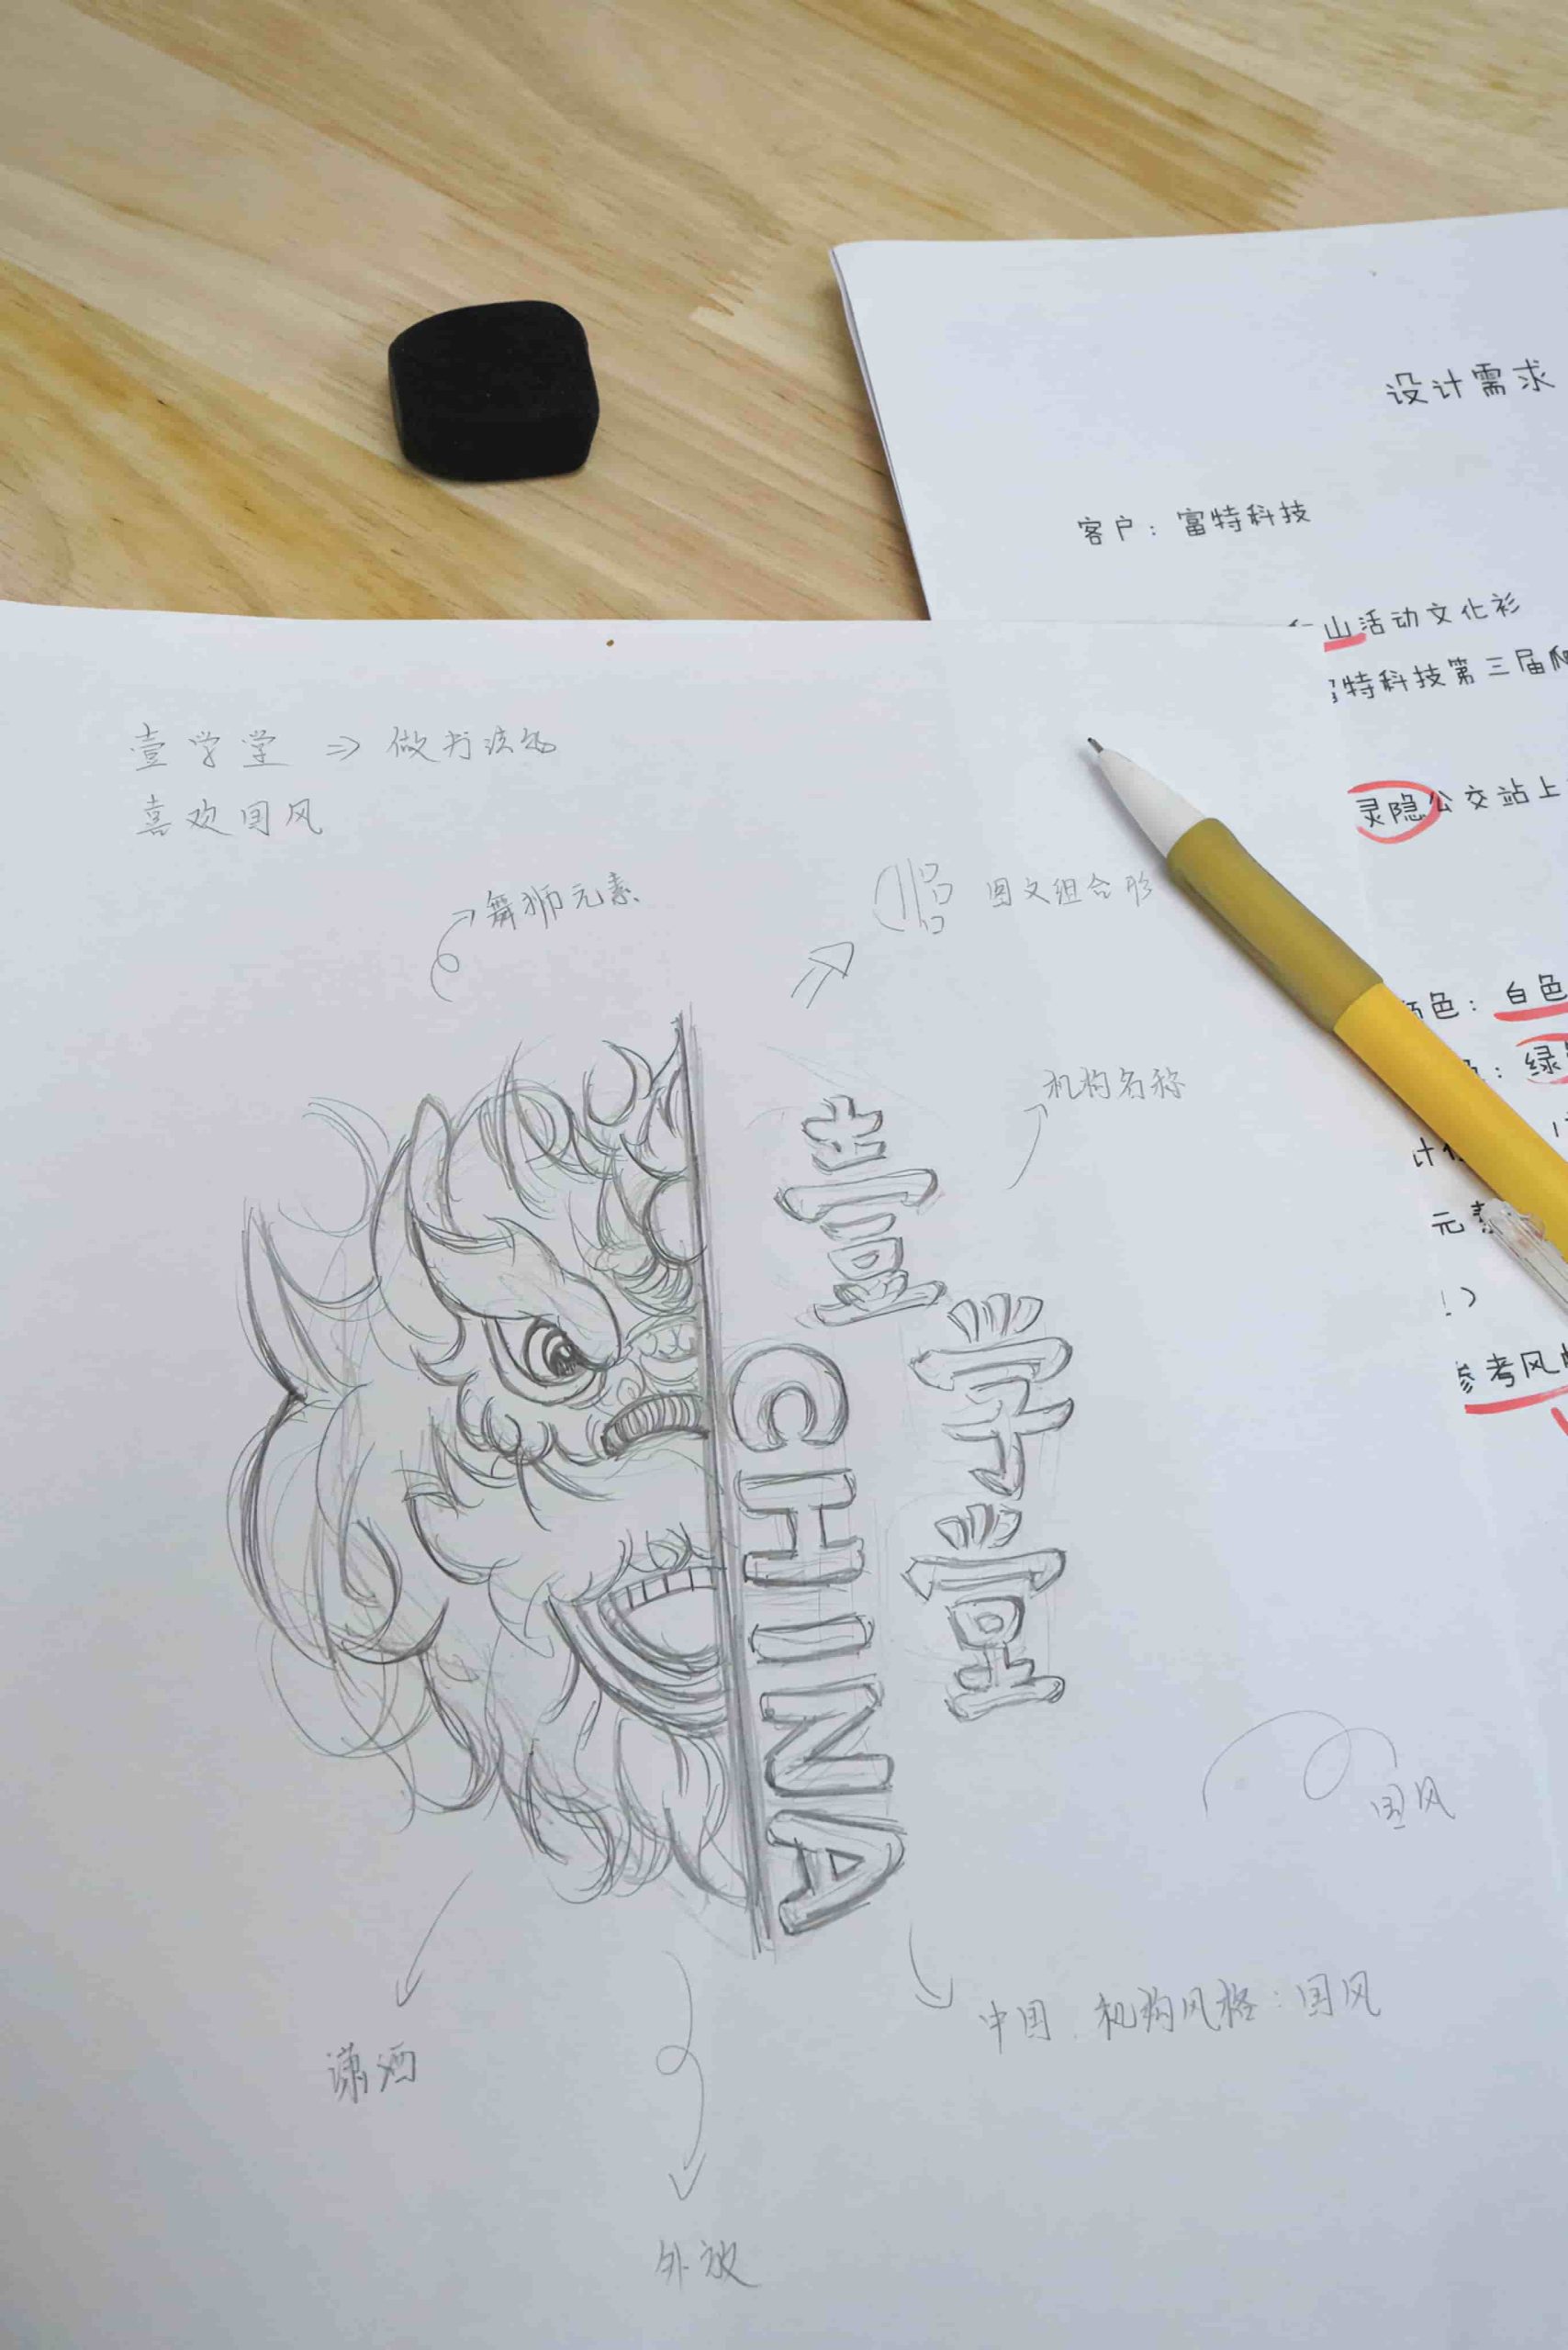 设计需求
客户：富特科技
山活动文化衫
特科技第三届爬
灵隐公交站上
色：白色
：绿
计
元素
！）
参考风
壹学堂 ⇒ 做书法的
喜欢国风
舞狮元素
图文组合形
机构名称
壹学堂
CHINA
国风
中国．机构风格：国风
潇洒
外放